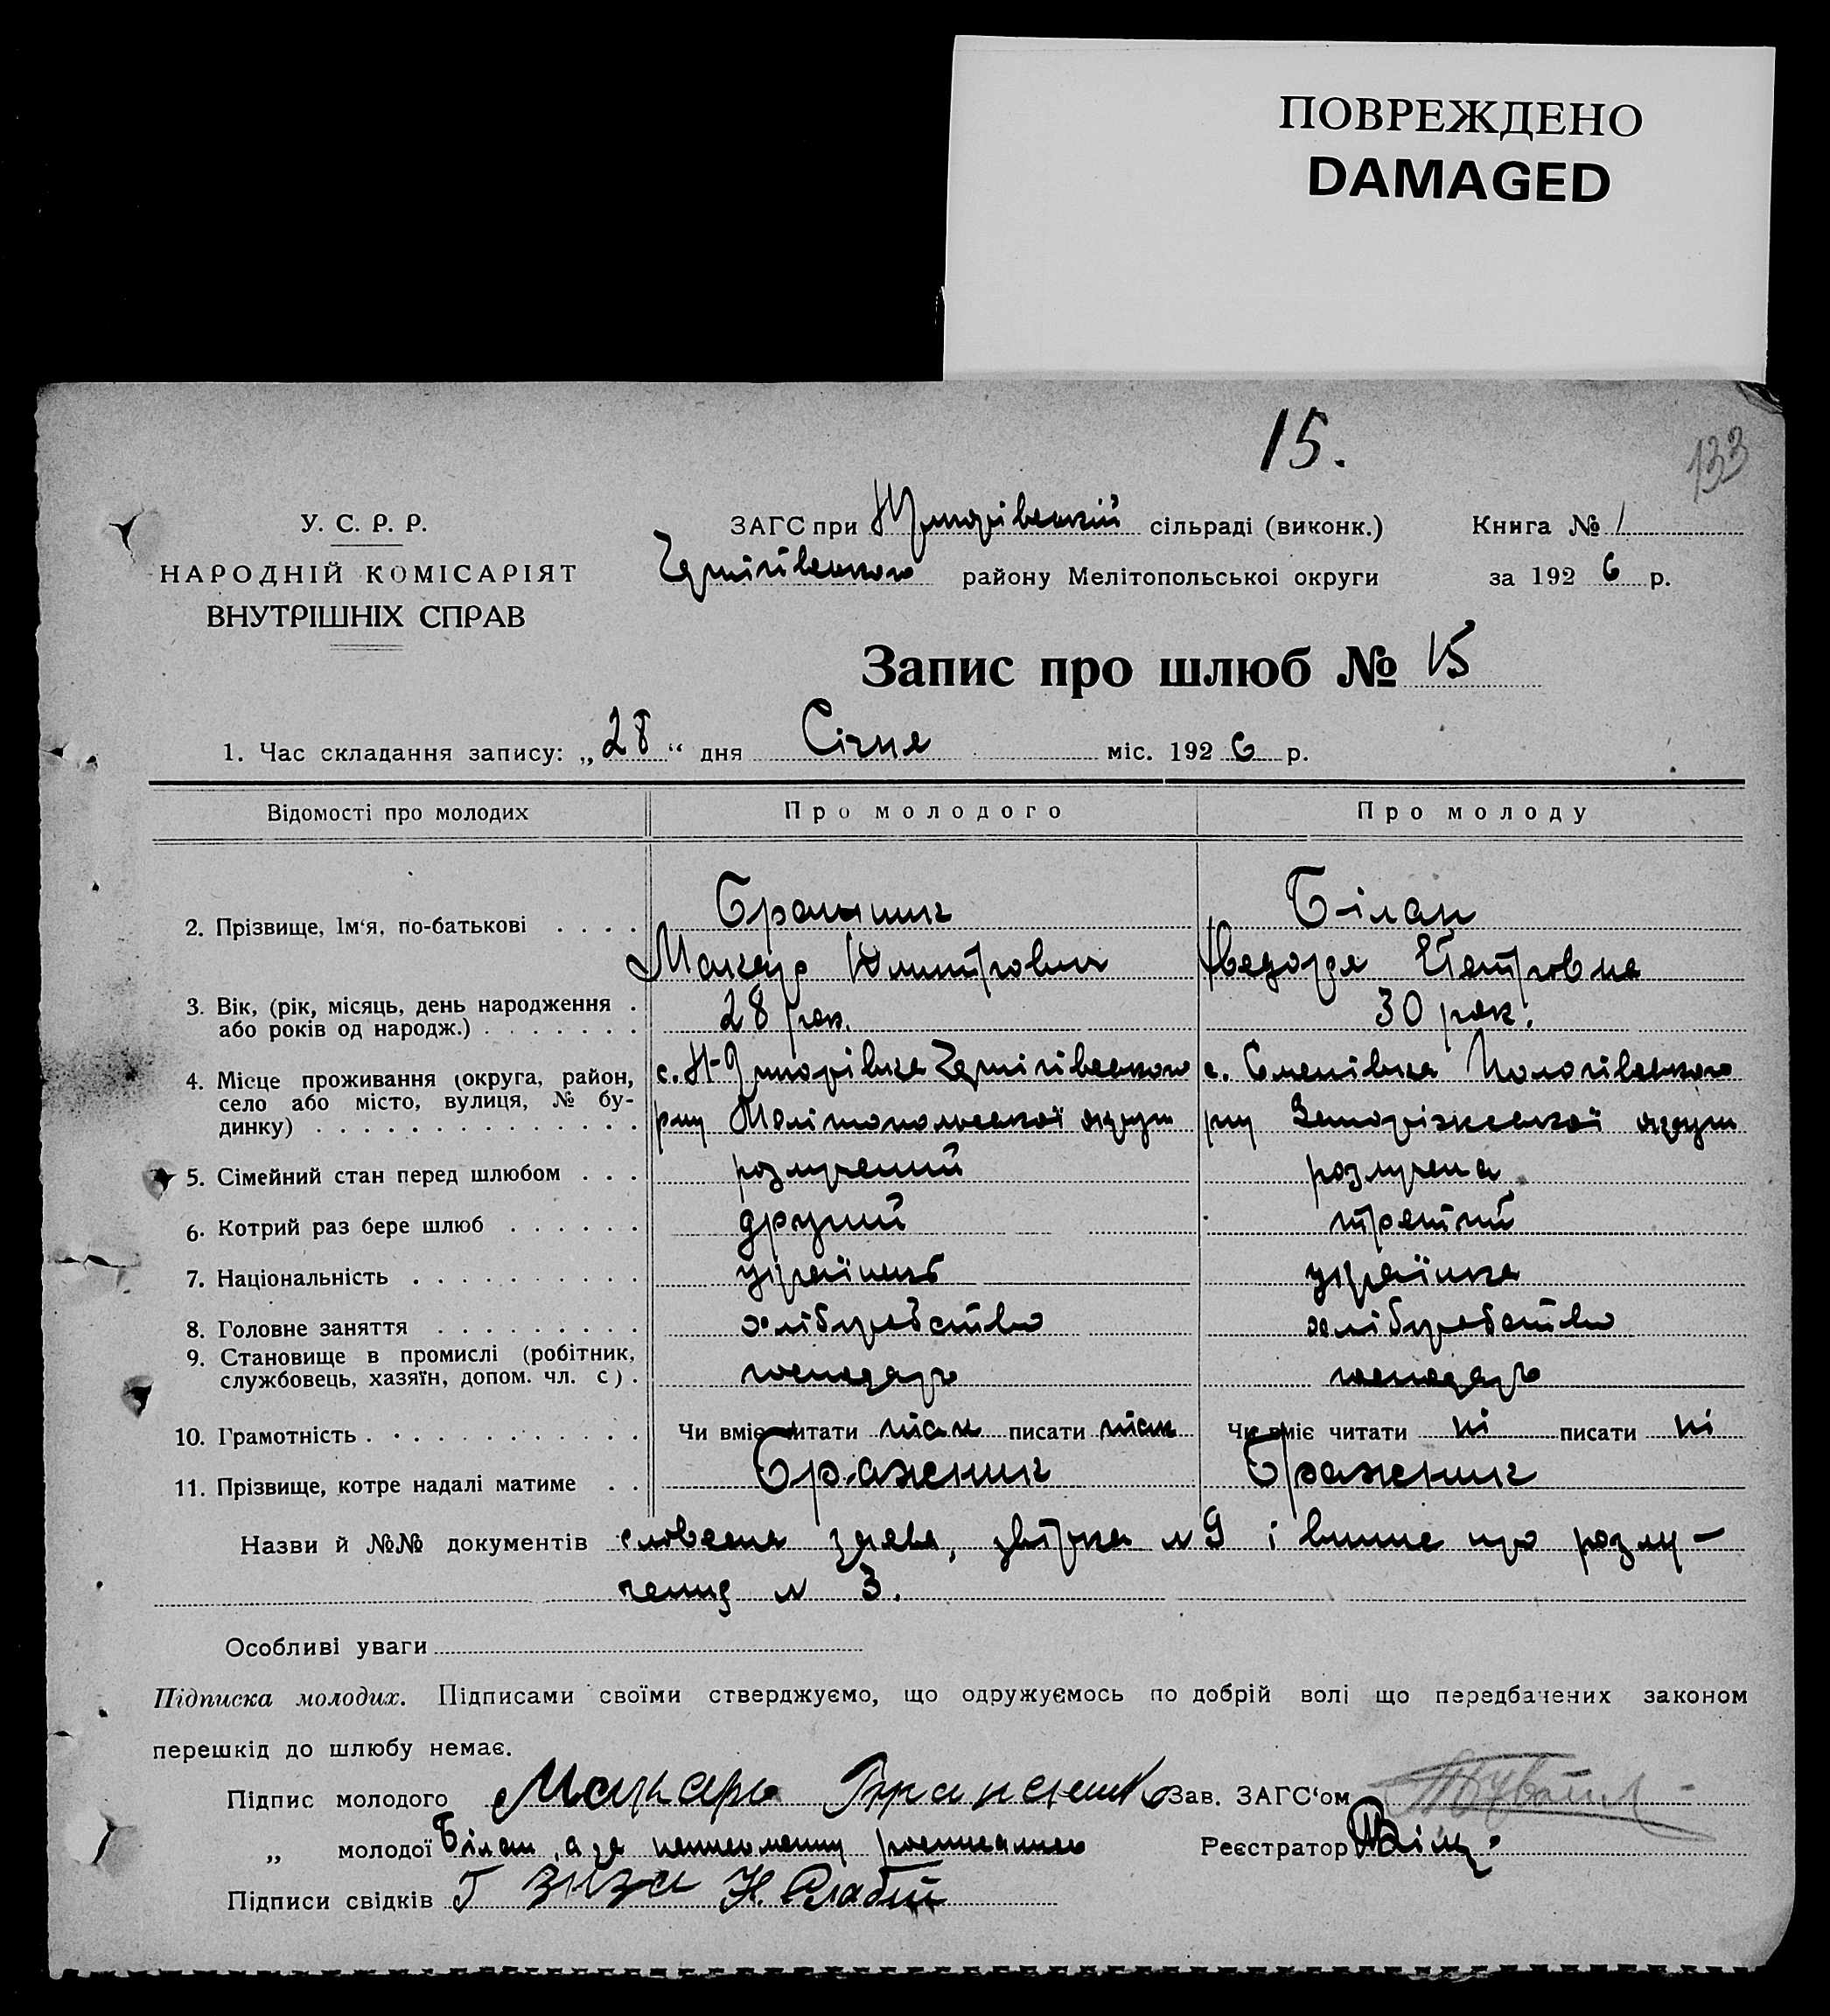 ПОВРЕЖДЕНО
DAMAGED
15.
133
У. С. Р. Р.
НАРОДНІЙ КОМІСАРІЯТ
ВНУТРІШНІХ СПРАВ
ЗАГС при сільраді (виконк.) Книга № 1
Чернігівського району Мелітопольської округи за 1926 р.
Запис про шлюб № 15
1. Час складання запису: „28“ дня Січня міс. 1926 р.
Відомості про молодих Про молодого Про молоду
2. Прізвище, Ім'я, по-батькові . . . . Бражник Білан
Макар Дмитрович Хведора Петровна
3. Вік, (рік, місяць, день народження . 28 рок. 30 рок.
або років од народж.) . . . . . . .
4. Місце проживання (округа, район, с. Чернігівського с. Семенівка Пологівського
село або місто, вулиця, № бу-
динку) . . . . . . . . . . . . . . р-ну Мелітопольської округи р-ну Запоріжської округи
5. Сімейний стан перед шлюбом . . . розлучений розлучена
6. Котрий раз бере шлюб . . . . . . другий третий
7. Національність . . . . . . . . . . українець українка
8. Головне заняття . . . . . . . . . хліборобство хліборобство
9. Становище в промислі (робітник,
службовець, хазяїн, допом. чл. с) . господарь господарь
10. Грамотність . . . . . . . . . . . . Чи вміє читати так писати так Чи вміє читати ні писати ні
11. Прізвище, котре надалі матиме . . Бражник Бражник
Назви й №№ документів словесна заява, № 9 і про розлу-
чення № 3.
Особливі уваги
Підписка молодих. Підписами своїми стверджуємо, що одружуємось по добрій волі що передбачених законом
перешкід до шлюбу немає.
Підпис молодого Макарь Зав. ЗАГС'ом
„ молодої Білан, а за неписьменну росписались Реєстратор
Підписи свідків Н. Слабий